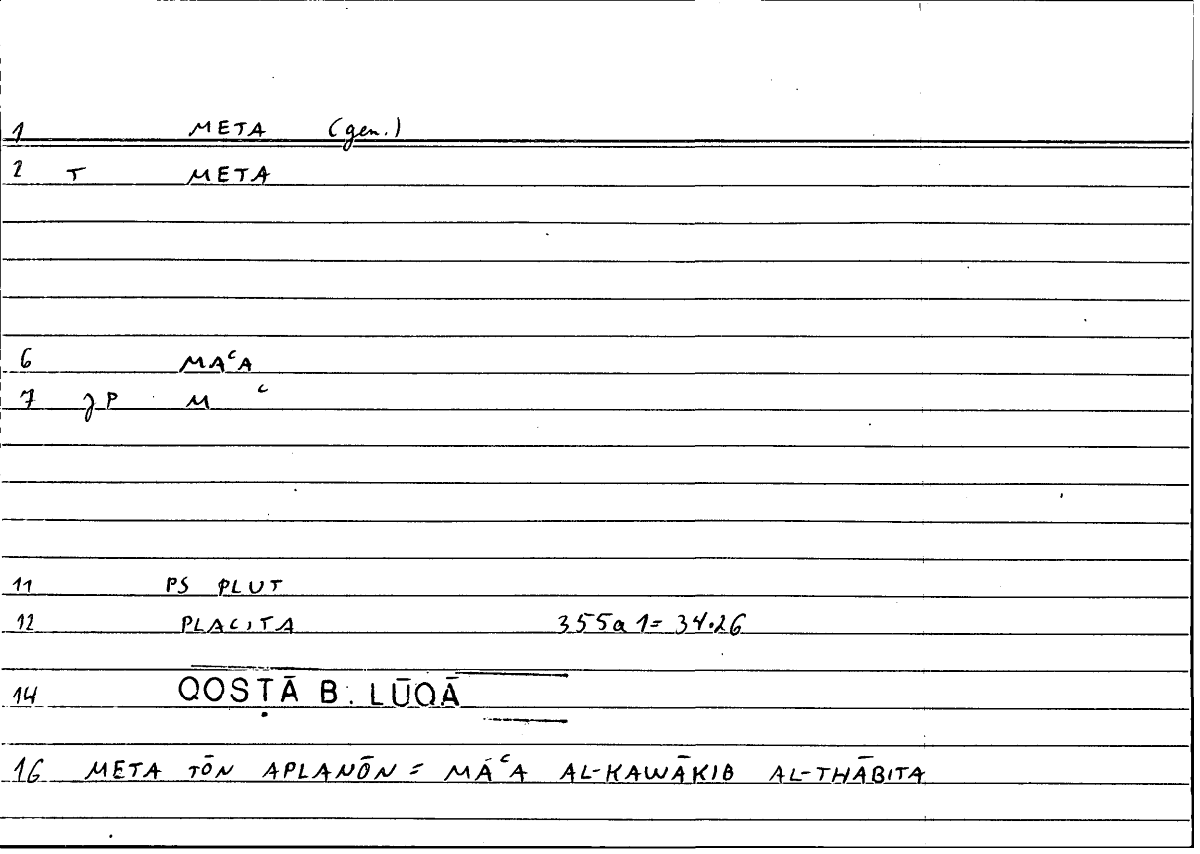 1 META (gen.)
2 T META
6 MAᶜA
7 P M ᶜ
11 PS PLUT
12 PLACITA 355a1=34.26
14 QOSṬĀ B. LŪQĀ
16 META TŌN APLANŌN = MAᶜA AL-KAWĀKIB AL-THĀBITA